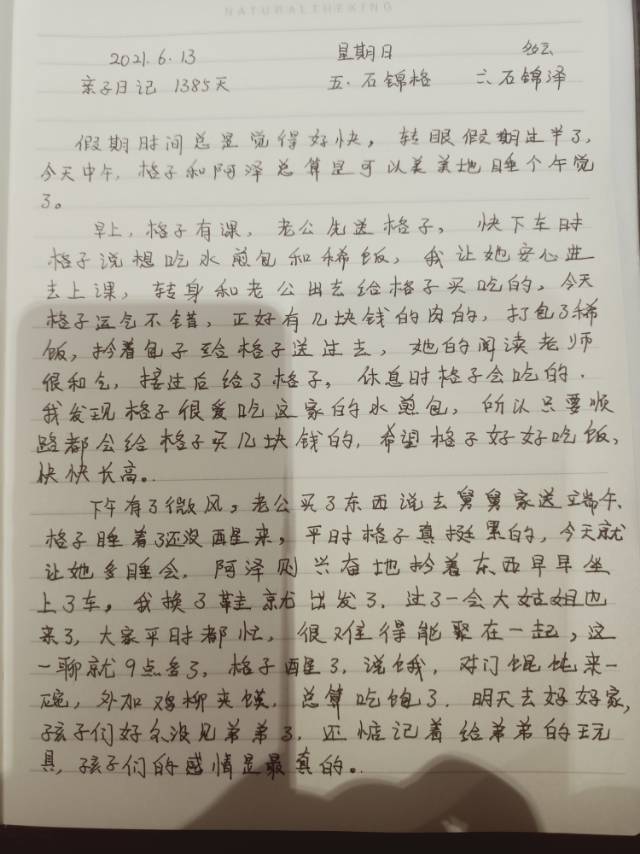 NATURALTHEKING
2021.6.13 星期日
亲子日记 1385天 五.石锦格 六石锦泽
假期时间总是觉得好快，转眼假期过半了，
今天中午，格子和阿泽总算是可以美美地睡个午觉
了。
早上，格子有课，老公先送格子，快下车时
格子说想吃水煎包和稀饭，我让她安心进
去上课，转身和老公出去给格子买吃的，今天
格子运气不错，正好有几块钱的肉的，打包了稀
饭，拎着包子给格子送过去，她的阅读老师
很和气，接过后给了格子，休息时格子会吃的.
我发现格子很爱吃这家的水煎包，所以只要顺
路都会给格子买几块钱的，希望格子好好吃饭，
快快长高。
下午有了微风，老公买了东西说去舅舅家送端午、
格子睡着了还没醒来，平时格子真挺累的，今天就
让她多睡会，阿泽则兴奋地拎着东西早早坐
上了车，我换了鞋就出发了.过了一会大姑姐也
来了，大家平时都忙，很难得能聚在一起，这
一聊就9点多了，格子醒了，说饿，对门馄饨来一
碗，外加鸡柳夹馍，总算吃饱了.明天去好好家，
孩子们好久没见弟弟了.还惦记着给弟弟的玩
具，孩子们的感情是最真的。